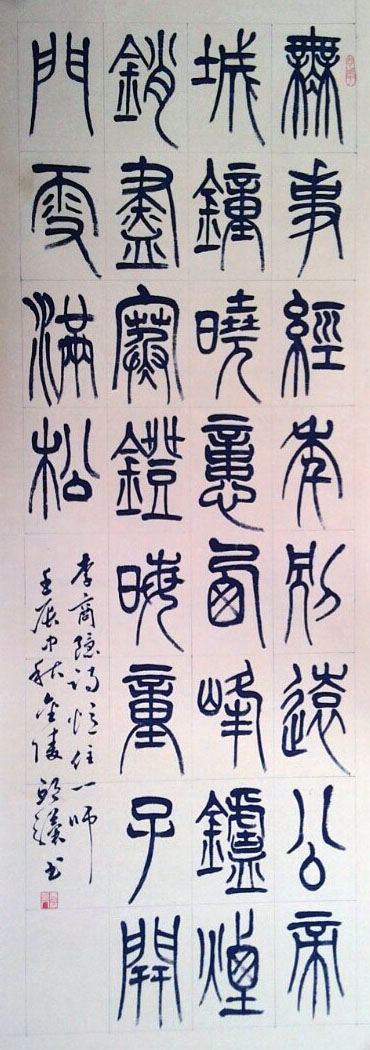 無事經年別遠公帝
城鐘曉憶西峰鑪煙
銷盡寒鐙晦童子開
門雪滿松
李商隐詩憶住一師
壬辰中秋金陵 书